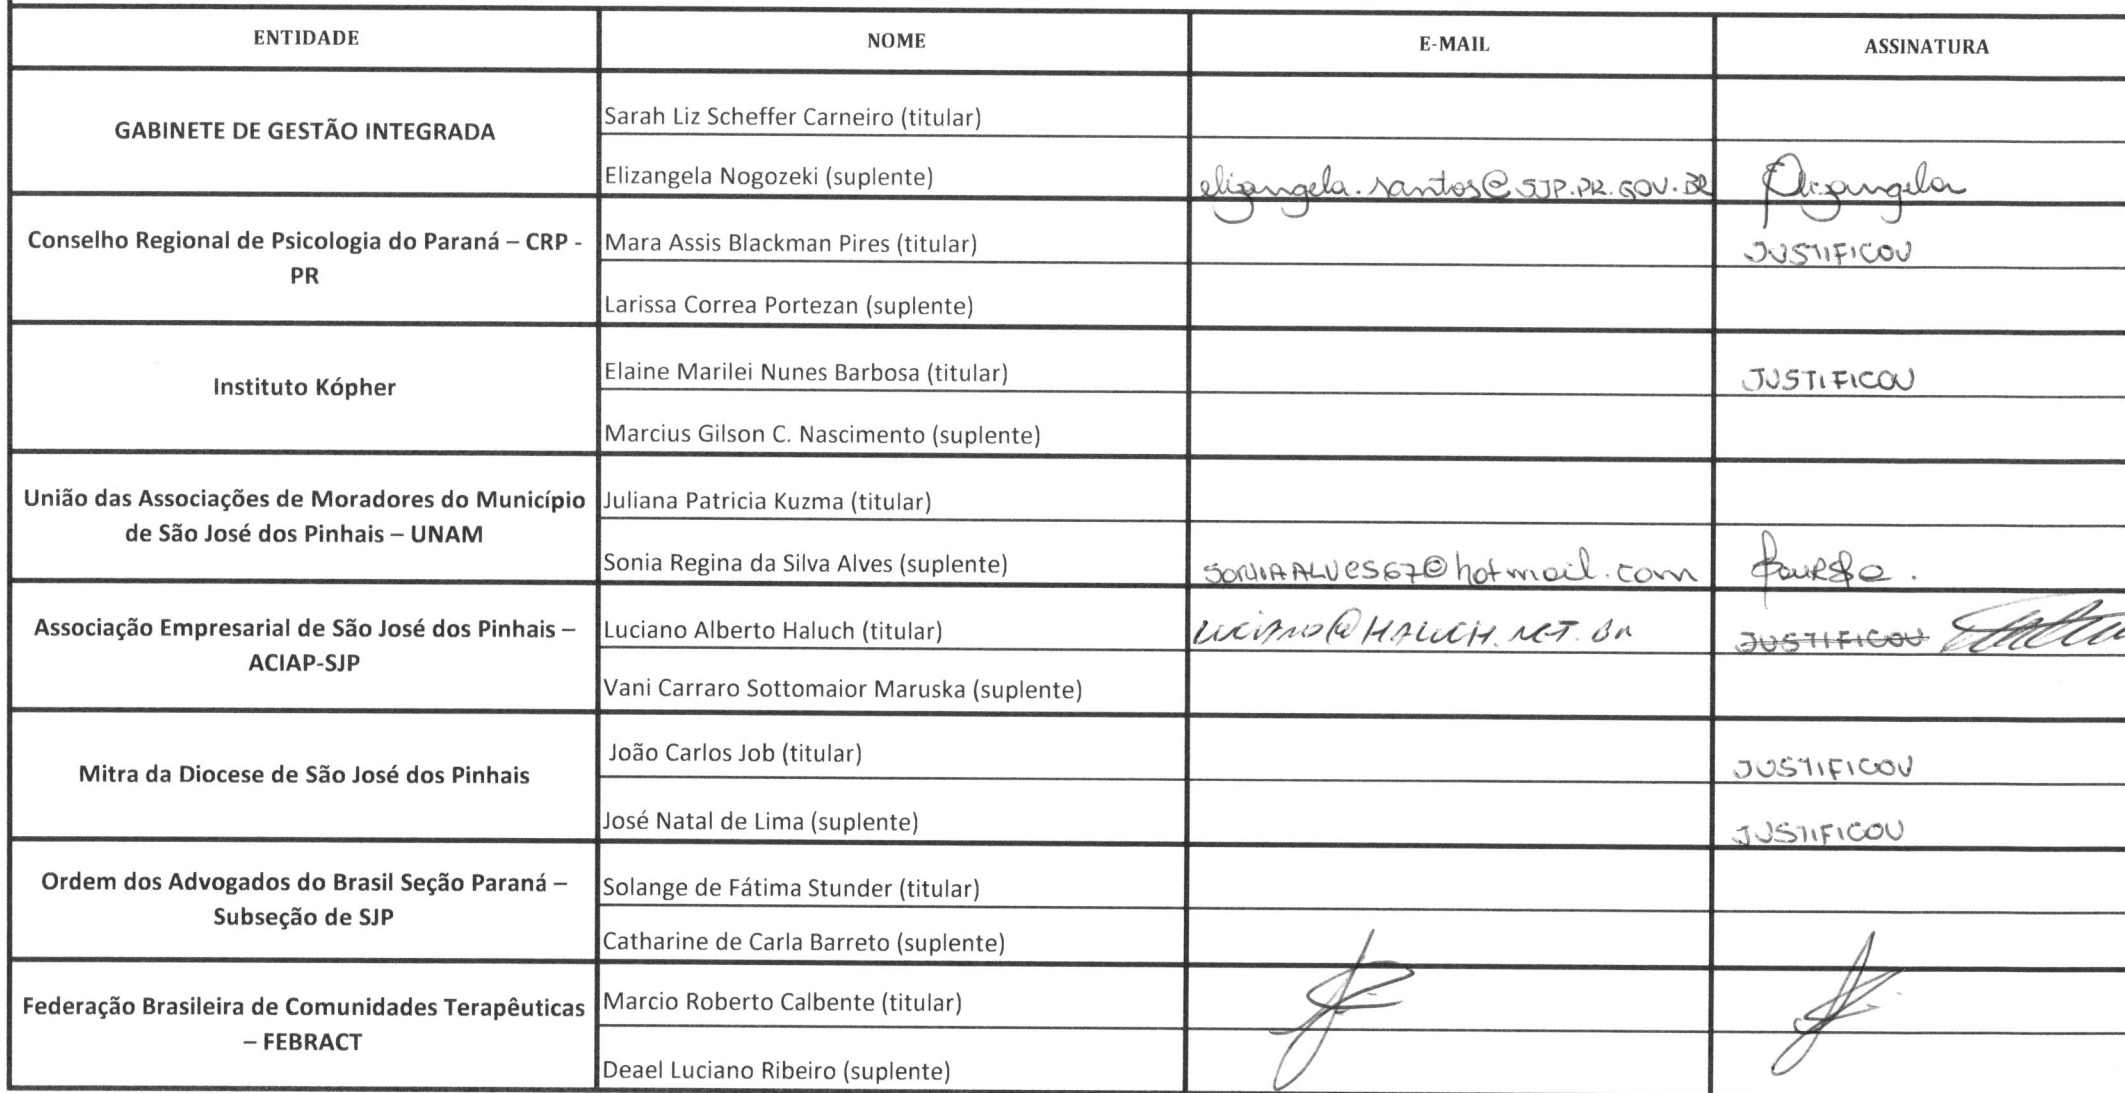 ENTIDADE NOME E-MAIL ASSINATURA
GABINETE DE GESTÃO INTEGRADA
Sarah Liz Scheffer Carneiro (titular)
Elizangela Nogozeki (suplente) elizangela.santos@SJP.PR.GOV.BR Elizangela
Conselho Regional de Psicologia do Paraná – CRP -
PR
Mara Assis Blackman Pires (titular) JUSTIFICOU
Larissa Correa Portezan (suplente)
Instituto Kópher
Elaine Marilei Nunes Barbosa (titular) JUSTIFICOU
Marcius Gilson C. Nascimento (suplente)
União das Associações de Moradores do Município
de São José dos Pinhais – UNAM
Juliana Patricia Kuzma (titular)
Sonia Regina da Silva Alves (suplente) SONIAALVES67@hotmail.com
Associação Empresarial de São José dos Pinhais –
ACIAP-SJP
Luciano Alberto Haluch (titular) LUCIANO@HALUCH.NET.BR JUSTIFICOU
Vani Carraro Sottomaior Maruska (suplente)
Mitra da Diocese de São José dos Pinhais
João Carlos Job (titular) JUSTIFICOU
José Natal de Lima (suplente) JUSTIFICOU
Ordem dos Advogados do Brasil Seção Paraná –
Subseção de SJP
Solange de Fátima Stunder (titular)
Catharine de Carla Barreto (suplente)
Federação Brasileira de Comunidades Terapêuticas
– FEBRACT
Marcio Roberto Calbente (titular)
Deael Luciano Ribeiro (suplente)